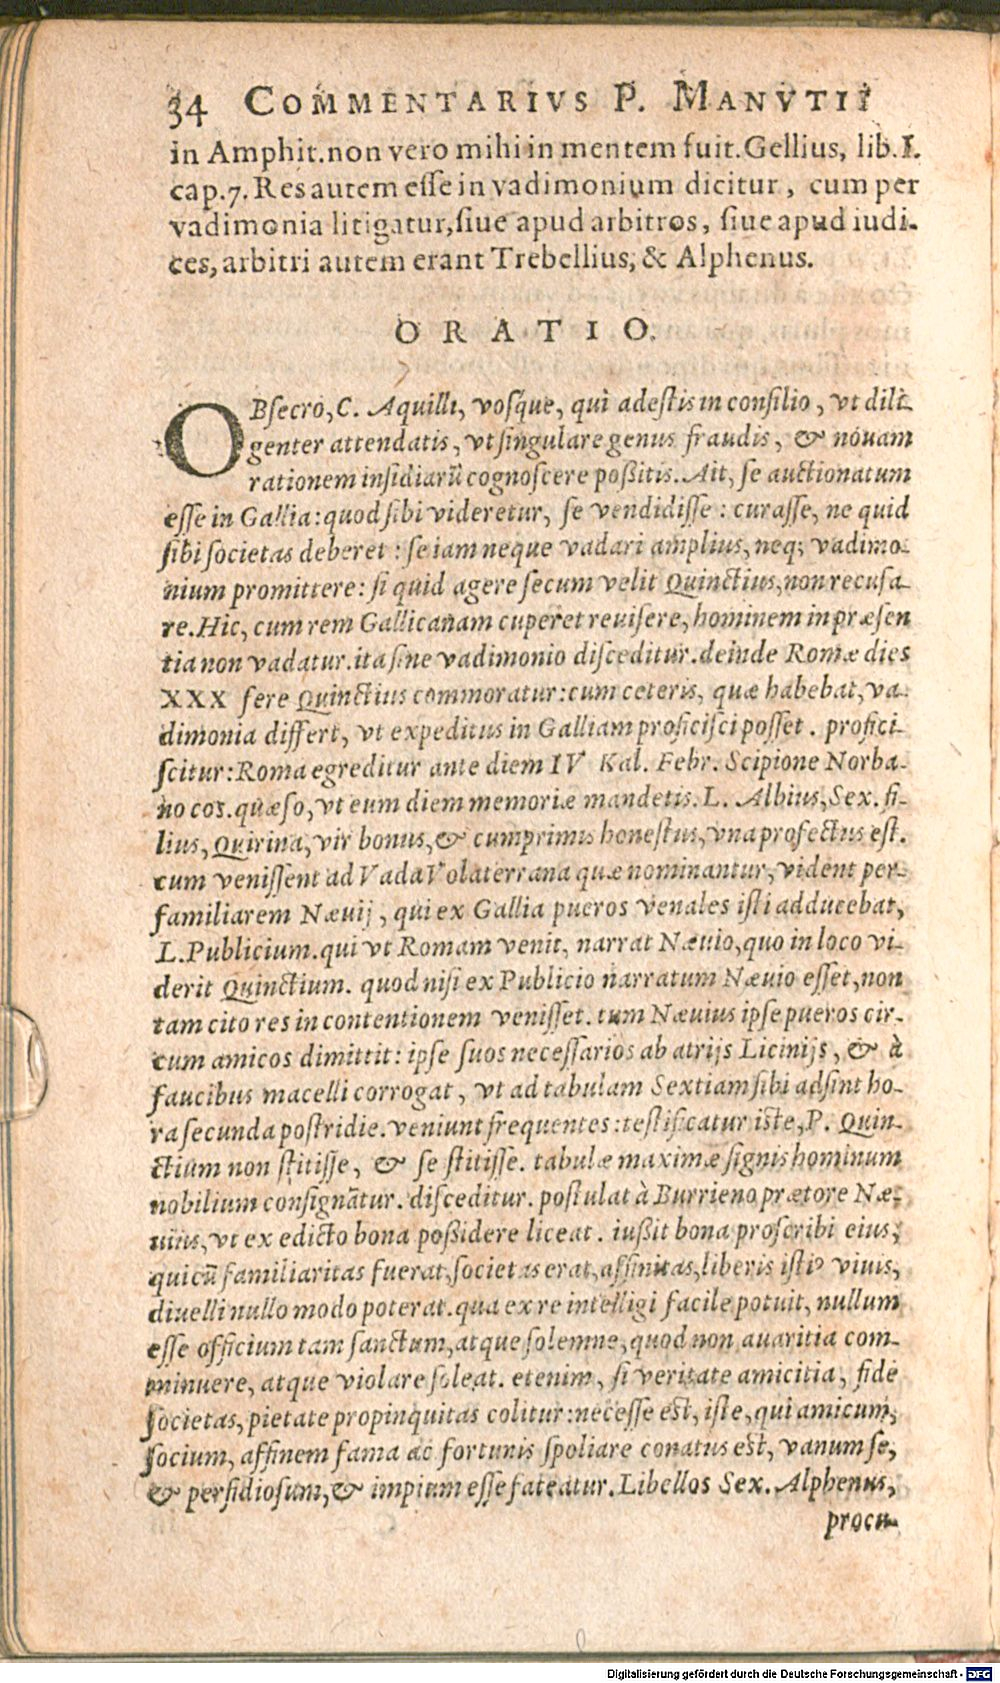 34 COMMENTARIVS P. MANVTII
in Amphit. non vero mihi in mentem fuit. Gellius, lib. I.
cap. 7. Res autem esse in vadimonium dicitur, cum per
vadimonia litigatur, siue apud arbitros, siue apud iudi-
ces, arbitri autem erant Trebellius, & Alphenus.
ORATIO.
OBsecro, C. Aquilli, vosque, qui adestis in consilio, vt dili-
genter attendatis, vt singulare genus fraudis, & nouam
rationem insidiarū cognoscere possitis. Ait, se auctionatum
esse in Gallia: quod sibi videretur, se vendidisse: curasse, ne quid
sibi societas deberet: se iam neque vadari amplius, neq; vadimo-
nium promittere: si quid agere secum velit Quinctius, non recusa-
re. Hic, cum rem Gallicanam cuperet reuisere, hominem in præsen
tia non vadatur. ita sine vadimonio disceditur. deinde Romæ dies
XXX fere Quinctius commoratur: cum ceteris, quæ habebat, va-
dimonia differt, vt expeditus in Galliam proficisci posset. profici-
scitur: Roma egreditur ante diem IV Kal. Febr. Scipione Norba-
no cos. quæso, vt eum diem memoriæ mandetis. L. Albius, Sex. fi-
lius, Quirina, vir bonus, & cumprimis honestus, vna profectus est.
cum venissent ad Vada Volaterrana quæ nominantur, vident per-
familiarem Næuij, qui ex Gallia pueros venales isti adducebat,
L. Publicium. qui vt Romam venit, narrat Næuio, quo in loco vi-
derit Quinctium. quod nisi ex Publicio narratum Næuio esset, non
tam cito res in contentionem venisset. tum Næuius ipse pueros cir-
cum amicos dimittit: ipse suos necessarios ab atrijs Licinijs, & à
faucibus macelli corrogat, vt ad tabulam Sextiam sibi adsint ho-
ra secunda postridie. veniunt frequentes: testificatur iste, P. Quin-
ctium non stitisse, & se stitisse. tabulæ maximæ signis hominum
nobilium consignātur. disceditur. postulat à Burrieno prætore Næ-
uius, vt ex edicto bona possidere liceat. iussit bona proscribi eius,
quicū familiaritas fuerat, societas erat, affinitas, liberis istiꝰ viuis,
diuelli nullo modo poterat. qua ex re intelligi facile potuit, nullum
esse officium tam sanctum, atque solemne, quod non auaritia com-
minuere, atque violare soleat. etenim, si veritate amicitia, fide
societas, pietate propinquitas colitur: necesse est, iste, qui amicum,
socium, affinem fama ac fortunis spoliare conatus est, vanum se,
& perfidiosum, & impium esse fateatur. Libellos Sex. Alphenus,
procu-
Digitalisierung gefördert durch die Deutsche Forschungsgemeinschaft - DFG